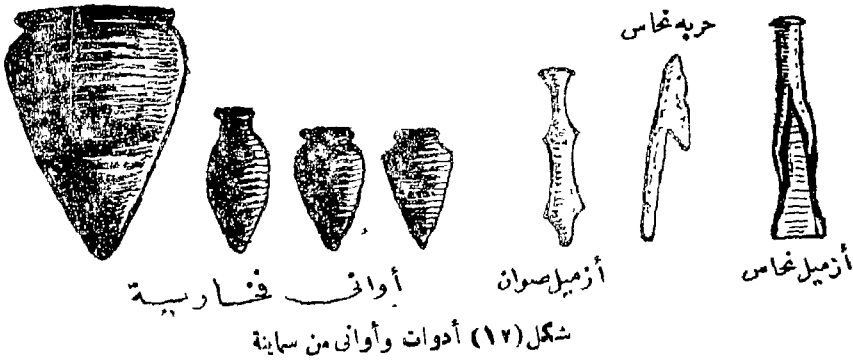 حربه نحاس
أزميل نحاس
أزميل صوان
أوانى فخارية
شكل (١٧) أدوات وأوانى من سماينة